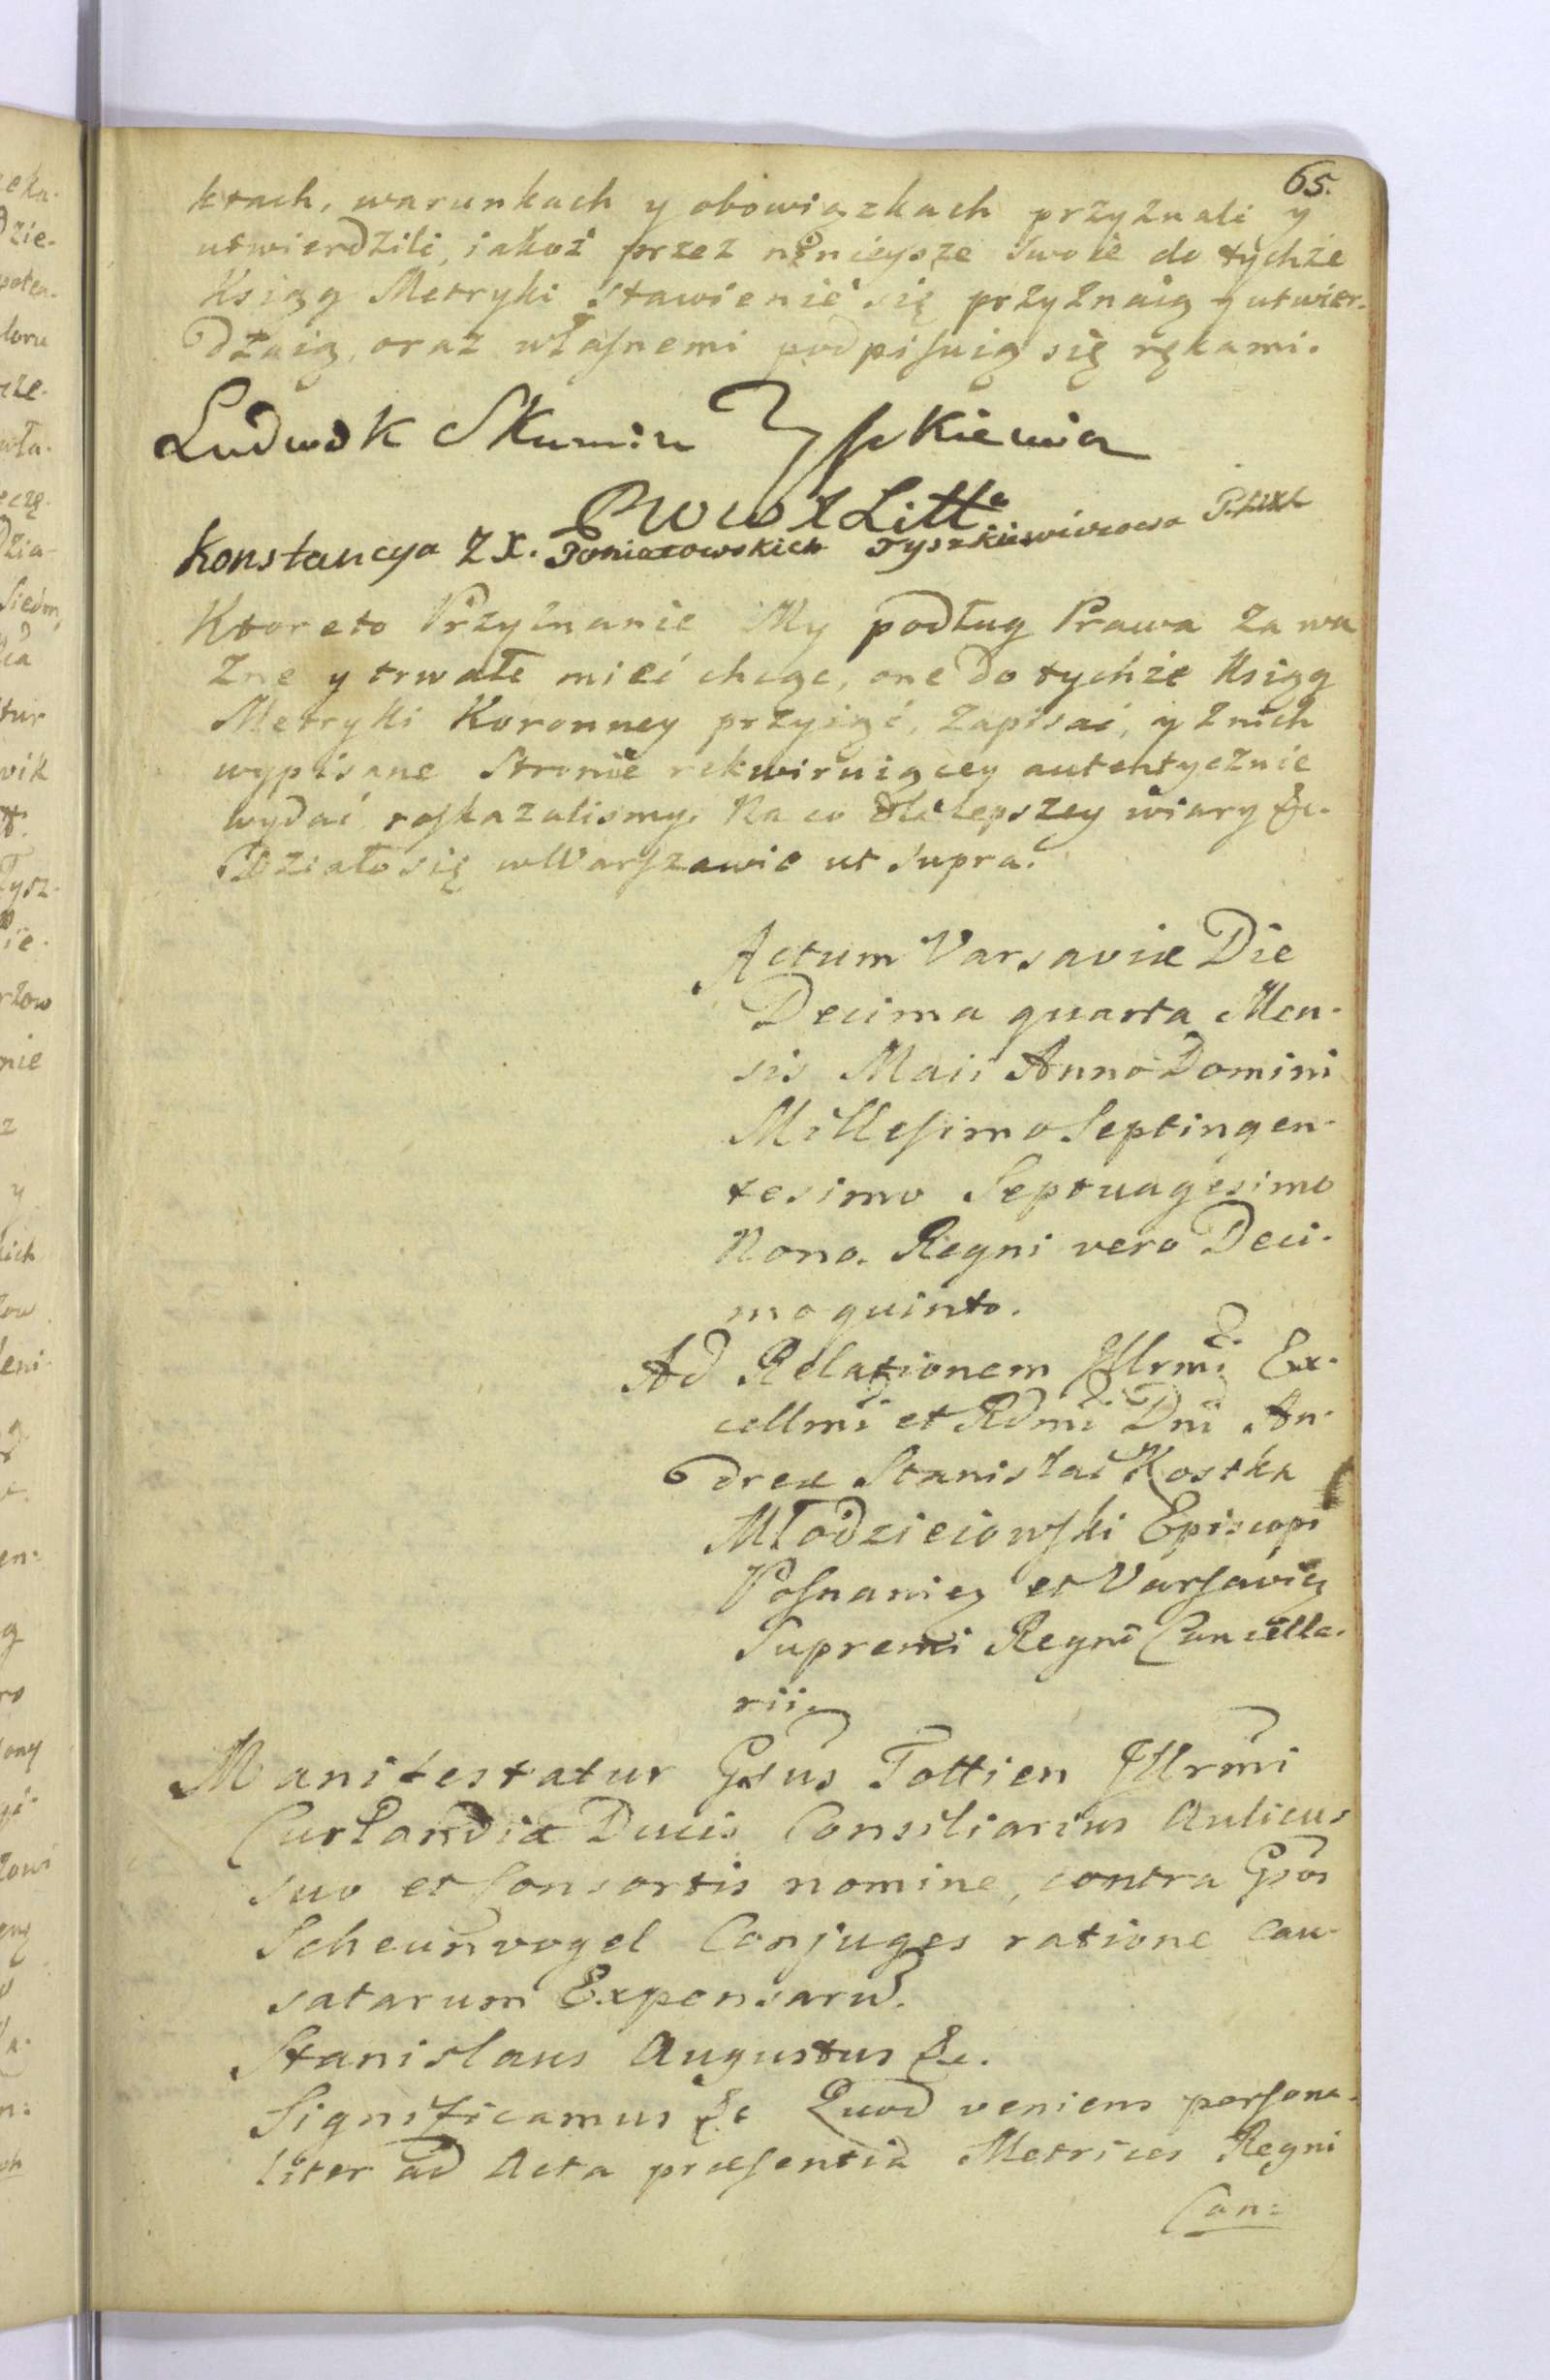 65.
ktach, warunkach y obowiązkach przyznali y
utwierdzili, iakoż przez ninieysze swoie do tychże
Ksiąg Metryki stawienie się przyznaią y utwier-
dzaią, oraz własnemi podpisuią się rękami.
Ludwik Skumin Tyszkiewicz
Konstancya z X. Poniatowskich Tyszkiewiczowa
Ktore to Przyznanie My podług Prawa za wa
żne y trwałe mieć chcąc, one do tychże Ksiąg
Metryki Koronney przyiąć, zapisać, y z nich
wypisane Stronie rekwiruiącey autentycznie
wydać roskazalismy. Na co dla lepszey wiary &c.
Działo się w Warszawie ut supra.
Actum Varsaviæ Die
Decima quarta Men-
sis Maii Anno Domini
Millesimo Septingen-
tesimo Septuagesimo
Nono. Regni vero Deci-
mo quinto.
Ad Relationem Illrmi Ex-
cellmi et Rdmi Dni An-
dreæ Stanislai Kostka
Młodzieiowski Episcopi
Posnanię et Varsavię
Supremi Regni Cancella-
rii.
Manifestatur Gsus Tottien Illrmi
Curlandiæ Ducis Consiliarius Aulicus
suo et Consortis nomine, contra Gsos
Scheunvogel Conjuges ratione cau-
satarum Expensarũ.
Stanislaus Augustus &c.
Significamus &c Quod veniens persona-
liter ad Acta præsentia Metrices Regni
Can: